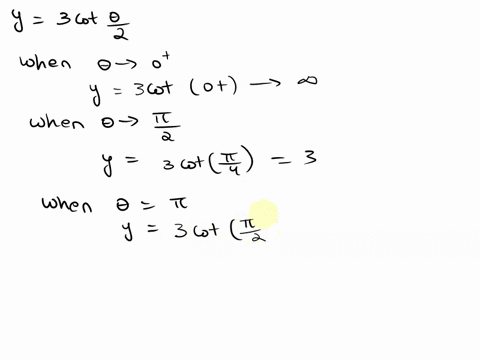 y = 3 cot θ/2
when θ → 0⁺
y = 3 cot (0+) → ∞
when θ → π/2
y = 3 cot (π/4) = 3
when θ = π
y = 3 cot (π/2